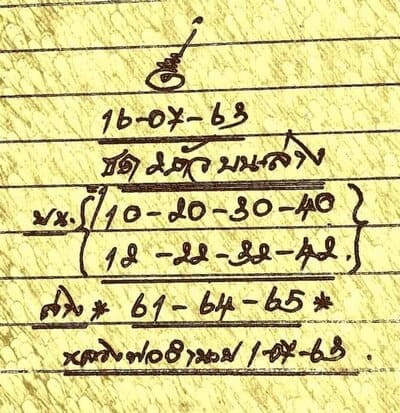 16-07-63
ชุด 2 ตัว บน-ล่าง
บน. { 10-20-30-40 }
12-22-32-42.
ล่าง * 61-64-65 *
หลวงพ่ออำนวย 1-07-63.